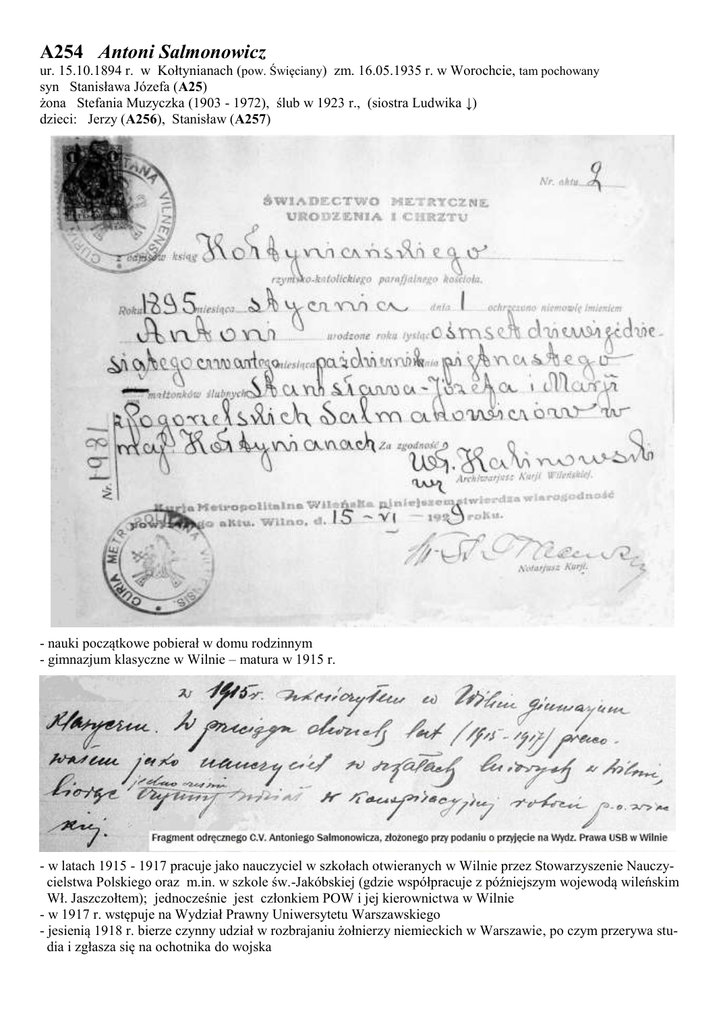 A254 Antoni Salmonowicz
ur. 15.10.1894 r. w Kołtynianach (pow. Święciany) zm. 16.05.1935 r. w Worochcie, tam pochowany
syn Stanisława Józefa (A25)
żona Stefania Muzyczka (1903 - 1972), ślub w 1923 r., (siostra Ludwika ↓)
dzieci: Jerzy (A256), Stanisław (A257)
Nr. aktu 2
ŚWIADECTWO METRYCZNE
URODZENIA I CHRZTU
z odpisów ksiąg Kołtyniańskiego
rzymsko-katolickiego parafjalnego kościoła.
Roku 1895 miesiąca stycznia dnia 1 ochrzczono niemowlę imieniem
Antoni urodzone roku tysiąc ośmset dziewięćdzie-
siątego czwartego miesiąca październik dnia piętnastego
małżonków ślubnych Stanisława-Józefa i Marji
z Pogorzelskich Salmanowiczów w
maj. Kołtynianach Za zgodność
Wł. Kalinowski
Archiwarjusz Kurji Wileńskiej.
Nr. 1981
Kurja Metropolitalna Wileńska niniejszem stwierdza wiarogodność
powyższego aktu. Wilno, d. 15 - VI - 1929 roku.
Notarjusz Kurji.
CURIA METROPOLITANA VILNENSIS
- nauki początkowe pobierał w domu rodzinnym
- gimnazjum klasyczne w Wilnie – matura w 1915 r.
w 1915 r. ukończyłem w Wilnie gimnazjum
klasyczne. W przeciągu dwuch lat (1915-1917) praco-
wałem jako nauczyciel w szkołach ludowych w Wilnie,
biorąc jednocześnie czynny udział w konspiracyjnej robocie p.o.wiac
kiej.
Fragment odręcznego C.V. Antoniego Salmonowicza, złożonego przy podaniu o przyjęcie na Wydz. Prawa USB w Wilnie
- w latach 1915 - 1917 pracuje jako nauczyciel w szkołach otwieranych w Wilnie przez Stowarzyszenie Nauczy-
cielstwa Polskiego oraz m.in. w szkole św.-Jakóbskiej (gdzie współpracuje z późniejszym wojewodą wileńskim
Wł. Jaszczołtem); jednocześnie jest członkiem POW i jej kierownictwa w Wilnie
- w 1917 r. wstępuje na Wydział Prawny Uniwersytetu Warszawskiego
- jesienią 1918 r. bierze czynny udział w rozbrajaniu żołnierzy niemieckich w Warszawie, po czym przerywa stu-
dia i zgłasza się na ochotnika do wojska